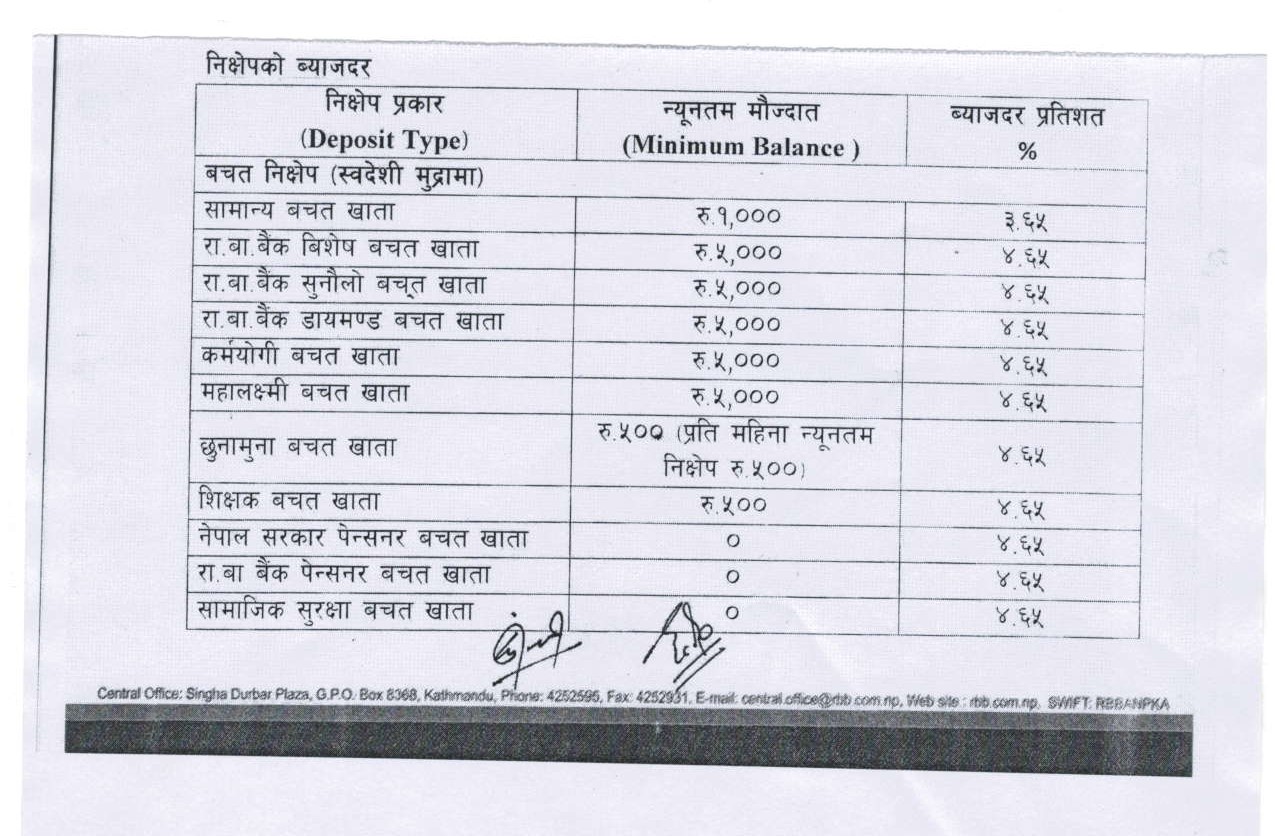 निक्षेपको ब्याजदर
निक्षेप प्रकार न्यूनतम मौज्दात ब्याजदर प्रतिशत
(Deposit Type) (Minimum Balance ) %
बचत निक्षेप (स्वदेशी मुद्रामा)
सामान्य बचत खाता रु.१,००० ३.६५
रा.बा.बैंक बिशेष बचत खाता रु.५,००० ४.६५
रा.बा.बैंक सुनौलो बचत खाता रु.५,००० ४.६५
रा.बा.बैंक डायमण्ड बचत खाता रु.५,००० ४.६५
कर्मयोगी बचत खाता रु.५,००० ४.६५
महालक्ष्मी बचत खाता रु.५,००० ४.६५
छुनामुना बचत खाता रु.५०० (प्रति महिना न्यूनतम
निक्षेप रु.५००) ४.६५
शिक्षक बचत खाता रु.५०० ४.६५
नेपाल सरकार पेन्सनर बचत खाता ० ४.६५
रा.बा बैंक पेन्सनर बचत खाता ० ४.६५
सामाजिक सुरक्षा बचत खाता ० ४.६५
Central Office: Singha Durbar Plaza, G.P.O. Box 8368, Kathmandu, Phone: 4252595, Fax: 4252931, E-mail: central.office@rbb.com.np, Web site : rbb.com.np, SWIFT: RBBANPKA